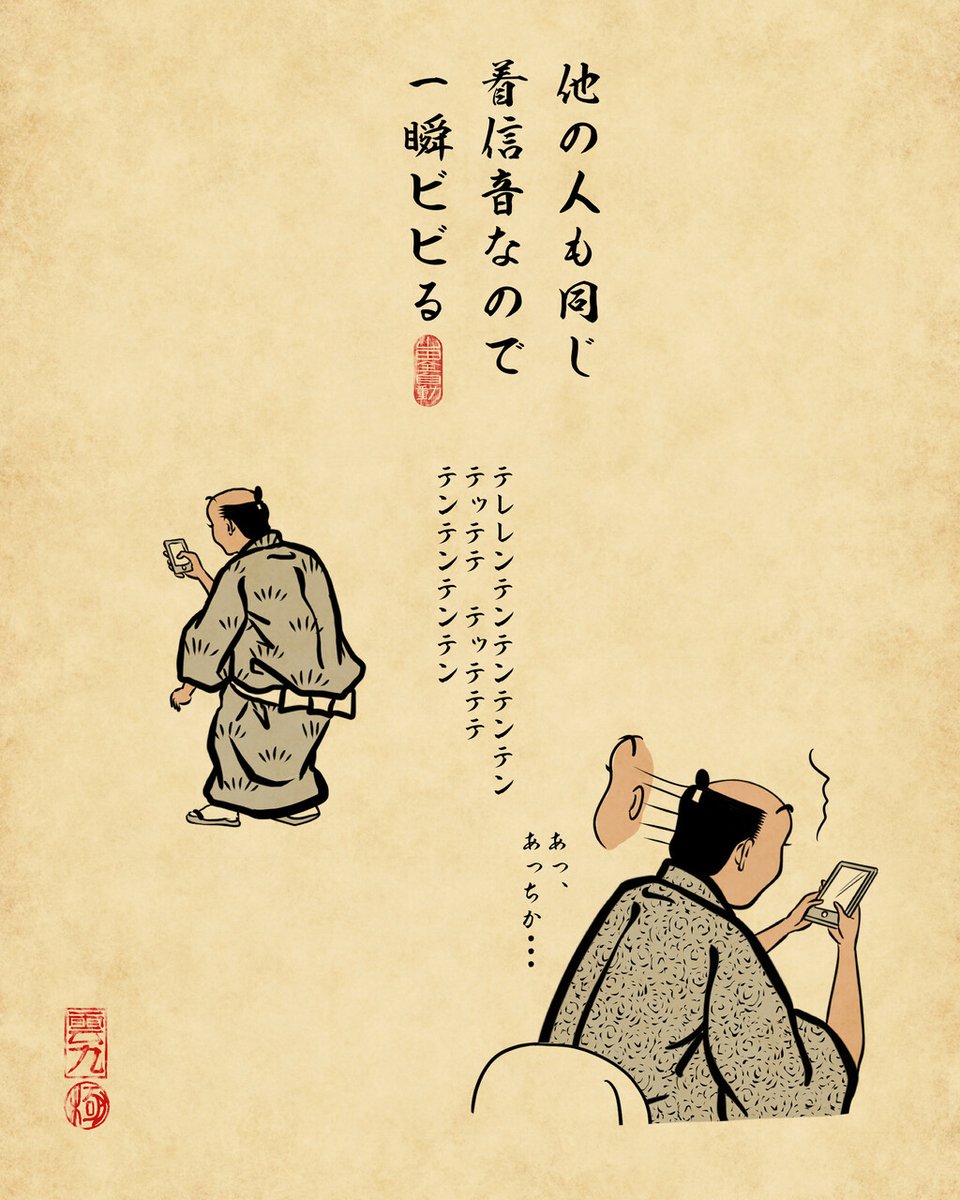 他の人も同じ
着信音なので
一瞬ビビる
テレレンテンテンテンテンテン
テッテテ テッテテテ
テンテンテンテン
あっ、
あっちか…
雲九
極